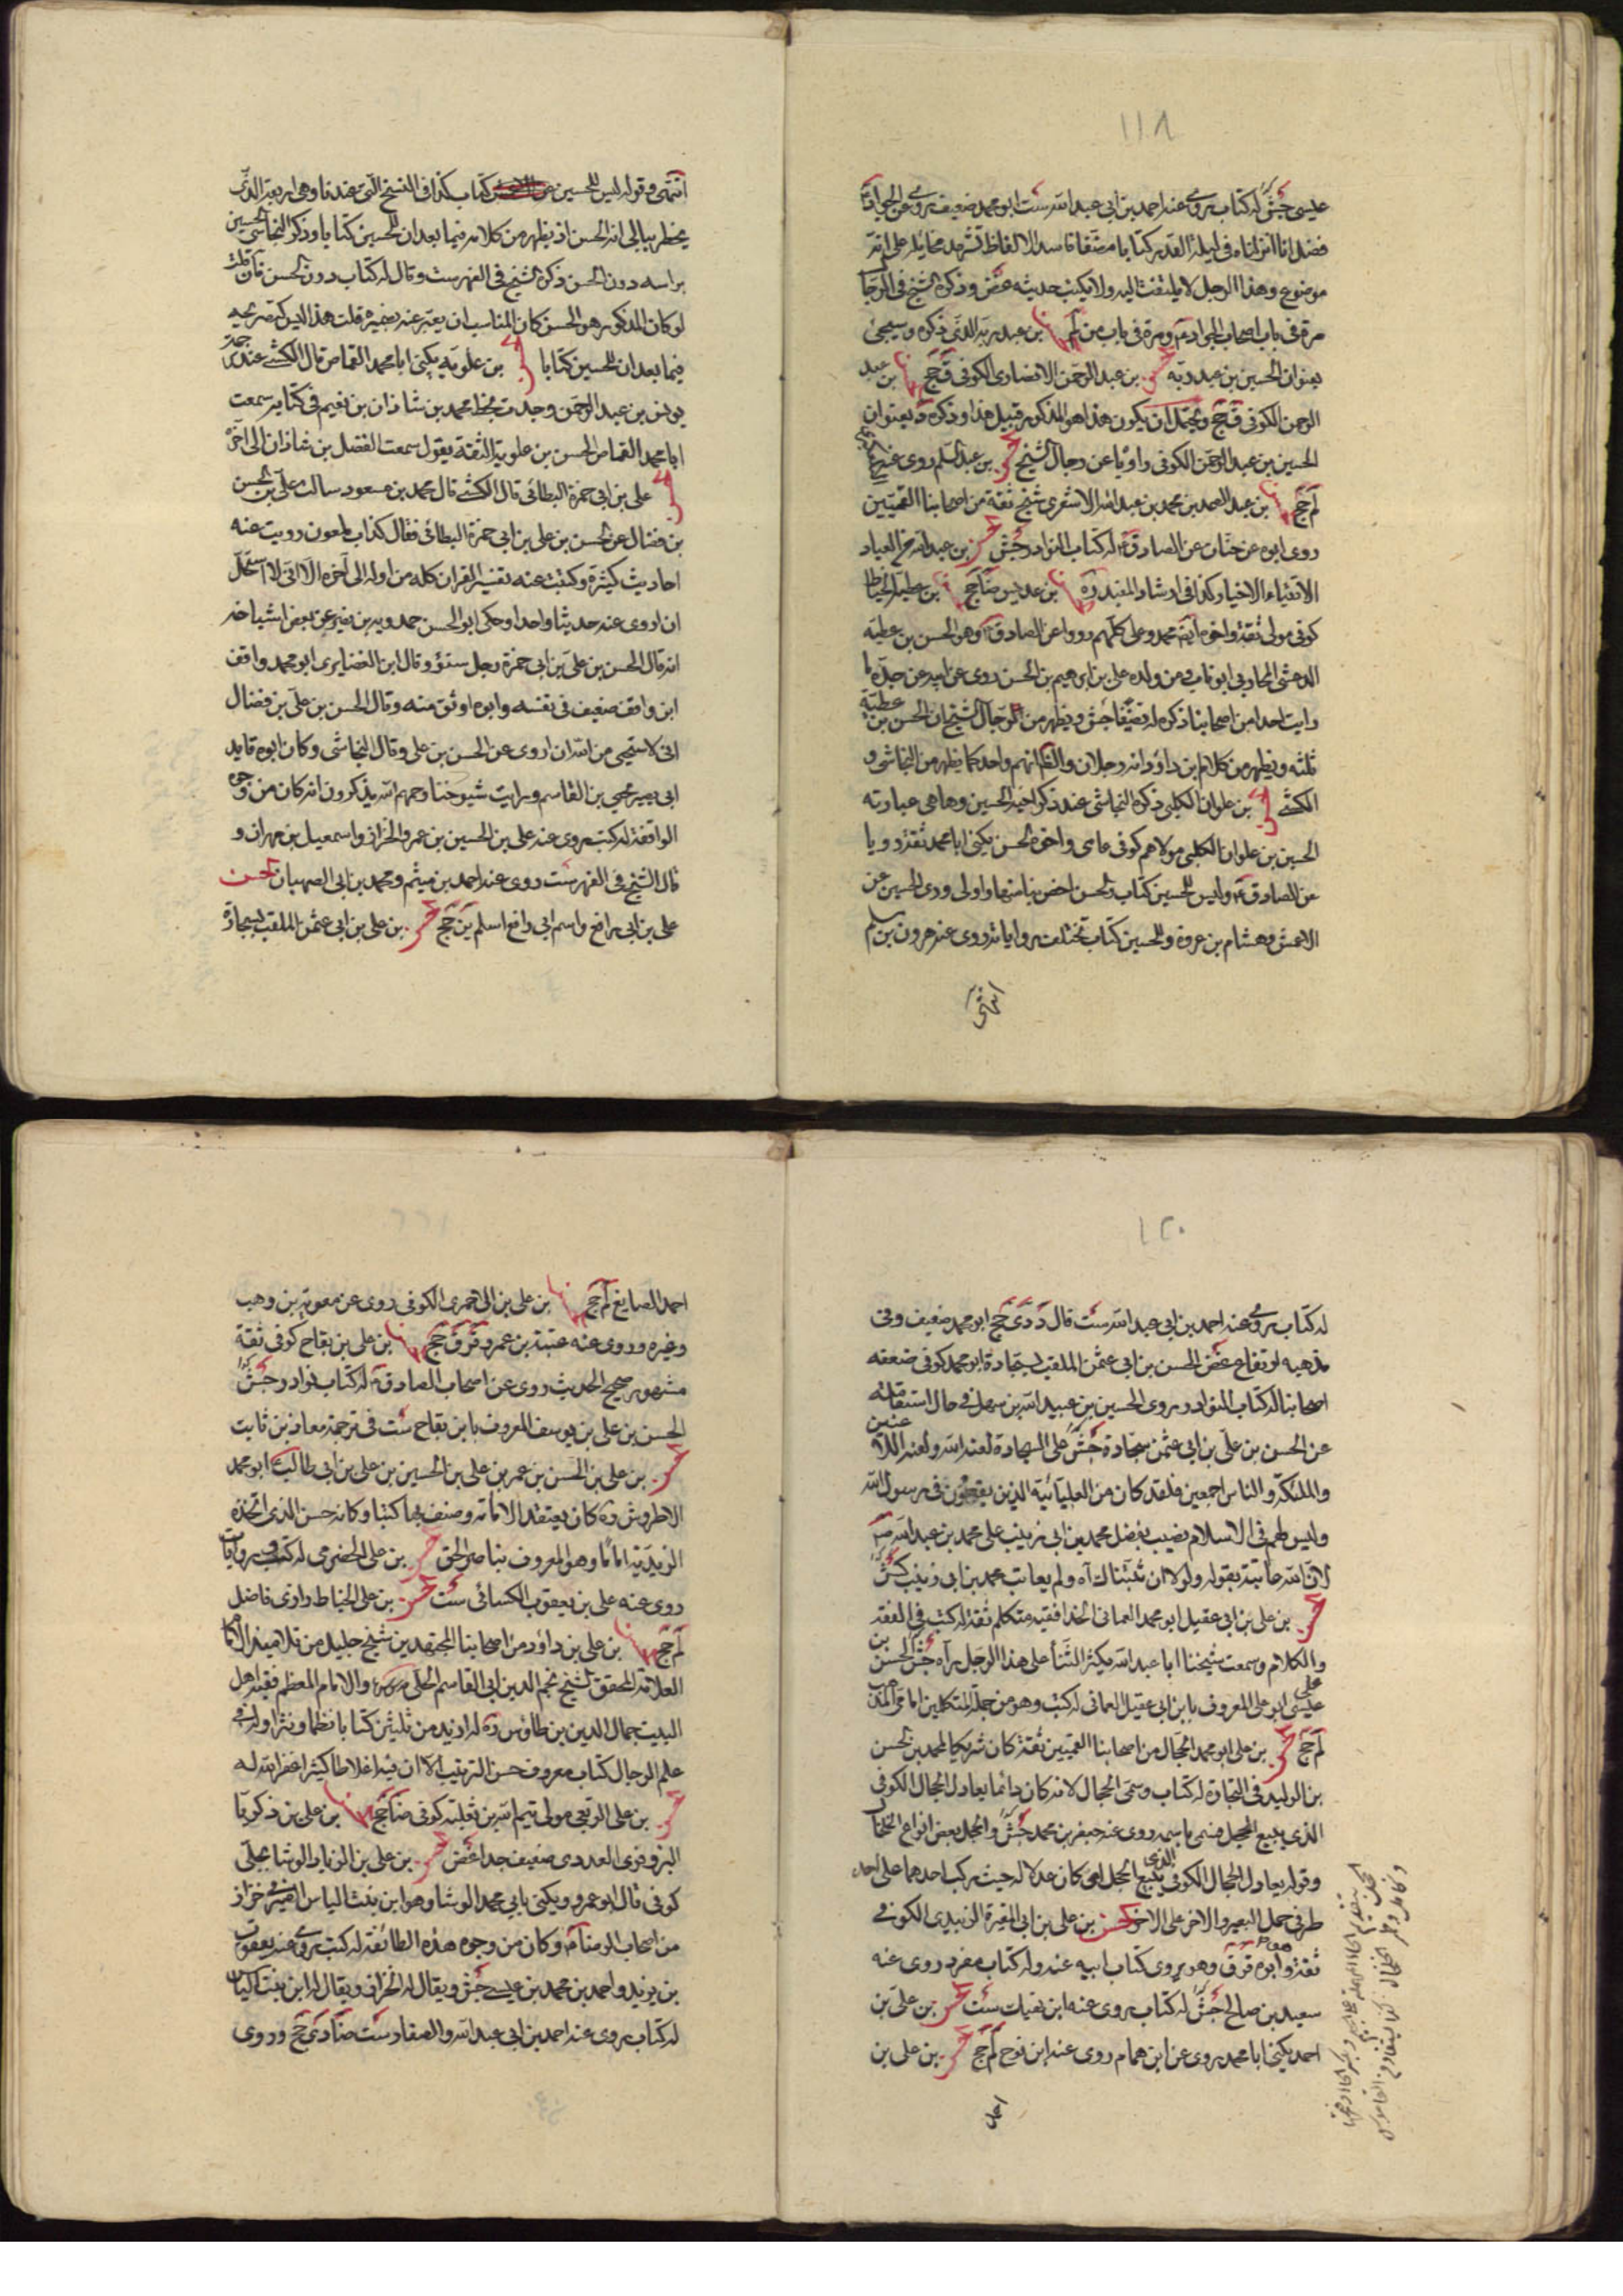 ١١٨
عيسى جش له كتاب يروى عنه احمد بن ابى عبد الله ست ابو محمد ضعيف روى عن الجواد
فضل انا انزلناه فى ليلة القدر كتابا مصنفا فاسد الالفاظ تشهد مخايله على انه
موضوع وهذا الرجل لا يلتفت اليه ولا يكتب حديثه غض وذكره الشيخ فى الرجا
مرة فى باب اصحاب الجواد ومرة فى باب من لم بن عبد ربه الذى ذكره وسيجئ
بعنوان الحسين بن عبد ربه بن عبد الرحمن الانصارى الكوفى ق جح بن عبد
الرحمن الكوفى ق جح ويحتمل ان يكون هذا هو المذكور قبيل هذا وذكره د بعنوان
الحسين بن عبد الرحمن الكوفى راويا عن رجال الشيخ بن عبد السلم روى عنه
لم جح بن عبد الصمد بن محمد بن عبد الله الاشعرى شيخ ثقة من اصحابنا القميين
روى ابوه عن حنان عن الصادق له كتاب النوادر جش بن عبد الله العباد
الاتقياء الاخيار كذا فى ارشاد المفيد ره بن عديس ضا جح بن عطية الحناط
كوفى مولى ثقة واخوه ايضا محمد وعلى كلهم رووا عن الصادق وهو الحسن بن عطية
الدغشى المحاربى ابو ناب ومن ولده على بن ابرهيم بن الحسن روى عن ابيه عن جده ما
رايت احدا من اصحابنا ذكر له تصنيفا جش ويظهر من الرجال الشيخ ان الحسن بن عطية
ثلثة ويظهر من كلام بن داود انه رجلان والظ انهم واحد كما يظهر من النجاشى و
الكشى بن علوان الكلبى ذكره النجاشى عند ذكر اخيه الحسين وها هى عبارته
الحسين بن علوان الكلبى مولاهم كوفى عامى واخوه الحسن يكنى ابا محمد ثقة رويا
عن الصادق وليس للحسين كتاب والحسن اخص بنا منهما واولى روى الحسين عن
الاعمش وهشام بن عروة وللحسين كتاب تختلف رواياته روى عنه هرون بن مسلم
انتهى
انتهى وقوله ليس للحسين كتاب كذا فى النسخ التى عندنا وهى اربعة الذى
يخطر ببالى انه الحسن اذ يظهر من كلامه فيما بعد ان للحسين كتابا وذكر النجاشى الحسين
براسه دون الحسن ذكره الشيخ فى الفهرست وقال له كتاب دون الحسن فان قلت
لو كان المذكور هو الحسن كان المناسب ان يعبر عنه بضميره قلت هذا ليس كتصريحه
فيما بعد ان للحسين كتابا بن علويه يكنى ابا محمد القماص قال الكشى عند ذكر
يونس بن عبد الرحمن وجدت بخط محمد بن شاذان بن نعيم فى كتابه سمعت
ابا محمد القماص الحسن بن علوية الثقة يقول سمعت الفضل بن شاذان الى اخره
على بن ابى حمزة البطائنى قال الكشى قال محمد بن مسعود سالت على بن الحسن
بن فضال عن الحسن بن على بن ابى حمزة البطائنى فقال كذاب ملعون رويت عنه
احاديث كثيرة وكتبت عنه تفسير القران كله من اوله الى آخره الا انى لا استحل
ان اروى عنه حديثا واحدا وحكى ابو الحسن حمدويه بن نصير عن بعض اشياخه
انه قال الحسن بن على بن ابى حمزة رجل سوء وقال ابن الغضايرى ابو محمد واقف
ابن واقف ضعيف فى نفسه وابوه اوثق منه وقال الحسن بن على بن فضال
انى لاستحيى من الله ان اروى عن الحسن بن على وقال النجاشى وكان ابوه قايد
ابى بصير يحيى بن القاسم ورايت شيوخنا رحمهم الله يذكرون انه كان من وجوه
الواقفة له كتب يروى عنه على بن الحسين بن عمر والخزاز واسمعيل بن مهران و
قال الشيخ فى الفهرست روى عنه احمد بن ميثم ومحمد بن ابى الصهبان الحسن
على بن ابى رافع واسم ابى رافع اسلم ين جح بن على بن ابى عثمن الملقب بسجادة
١٢٠
له كتاب يروى عنه احمد بن ابى عبد الله ست قال د دى جح ابو محمد ضعيف وفى
مذهبه ارتفاع غض الحسن بن ابى عثمن الملقب سجادة ابو محمد كوفى ضعفه
اصحابنا له كتاب النوادر يروى الحسين بن عبيد الله بن سهل فى حال استقامته
عن الحسن بن على بن ابى عثمن سجادة جش على السجادة لعنة الله ولعنة اللاعنين
والملئكة والناس اجمعين فلقد كان من العليائية الذين يقعون فى رسول الله
وليس لهم فى الاسلام نصيب يفضل محمد بن ابى زينب على محمد بن عبد الله ص
لان الله عاتبه بقوله ولولا ان ثبتناك آه ولم يعاتب محمد بن ابى زينب كش
بن على بن ابى عقيل ابو محمد العمانى الحذا فقيه متكلم ثقة له كتب فى الفقه
والكلام وسمعت شيخنا ابا عبد الله يكثر الثنا على هذا الرجل ره جش الحسن بن
عيسى ابو على المعروف بابن ابى عقيل العمانى له كتب وهو من جملة المتكلمين امامى المذهب
لم جح بن على ابو محمد الحجال من اصحابنا القميين ثقة كان شريكا لمحمد بن الحسن
بن الوليد فى التجارة له كتاب وسمى الحجال لانه كان دائما يعادل الحجال الكوفى
الذى يبيع الحجل فسمى باسمه روى عنه جعفر بن محمد جش والحجل بعض انواع الخلخال
وقوله يعادل الحجال الكوفى الذى يبيع الحجل اى كان عدلا له حيث يركب احدهما على احد
طرفى حمل البعير والاخر على الاخر الحسن بن على بن ابى المغيرة الزبيدى الكوفى
ثقة هو وابوه قر ق وهو يروى كتاب ابيه عنه وله كتاب مفرد روى عنه
سعيد بن صالح جش له كتاب يروى عنه ابن نهيك ست بن على بن
احمد يكنى ابا محمد يروى عن ابن همام روى عنه ابن نوح لم جح بن على بن
احمد
احمد الصايغ لم جح بن على بن الاحمرى الكوفى روى عن معوية بن وهب
وغيره وروى عنه عتبة بن عمرو قر ق جح بن على بن بقاح كوفى ثقة
مشهور صحيح الحديث روى عن اصحاب الصادق له كتاب نوادر جش
الحسن بن على بن يوسف المعروف بابن بقاح ست فى ترجمة معاذ بن ثابت
بن على بن الحسن بن عمر بن على بن الحسين بن على بن ابى طالب ابو محمد
الاطروش ره كان يعتقد الامامة وصنف بها كتبا وكانه حسن الذى اتخذه
الزيدية اماما وهو المعروف بناصر الحق بن على الحضرمى له كتب وروايات
روى عنه على بن يعقوب الكسائى ست بن على الخياط رازى فاضل
لم جح بن على بن داود من اصحابنا المجتهدين شيخ جليل من تلاميذ الاما
العلامة المحقق الشيخ نجم الدين ابى القاسم الحلى والامام المعظم فقيه اهل
البيت جمال الدين بن طاوس ره له ازيد من ثلثين كتابا نظما ونثرا وله فى
علم الرجال كتاب معروف حسن الترتيب الا ان فيه اغلاطا كثيرا غفر الله له
بن على الربعى مولى تيم الله بن ثعلبة كوفى ضا جح بن على بن زكريا
البزوفرى العددى ضعيف جدا غض بن على بن الزياد الوشا بجلى
كوفى قال ابو عمرو ويكنى بابى محمد الوشا وهو ابن بنت الياس الصيرفى خزاز
من اصحاب الرضا وكان من وجوه هذه الطائفة له كتب يروى عنه يعقوب
بن يزيد واحمد بن محمد بن عيسى جش ويقال له الخزاز ويقال له ابن بنت الياس
له كتاب يروى عنه احمد بن ابى عبد الله والصفار ست ضا دى جح وروى